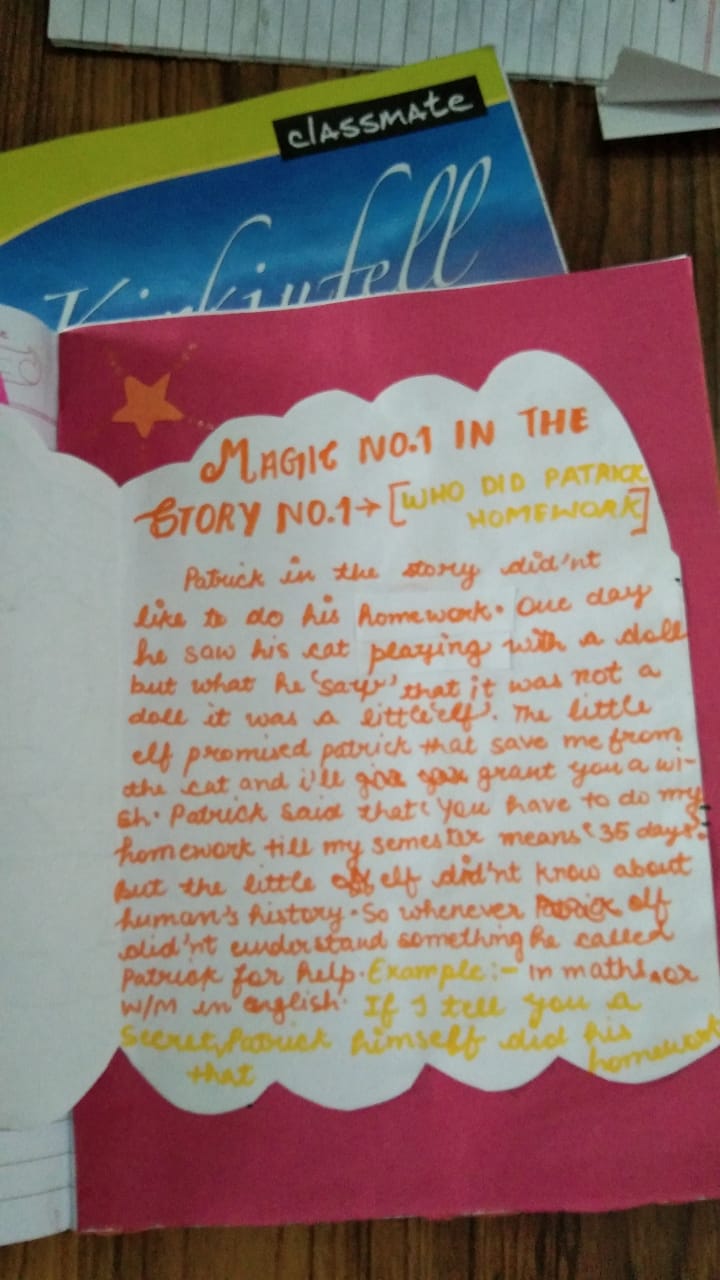 classmate
Kirkjufell
MAGIC NO.1 IN THE
STORY NO.1→ [WHO DID PATRICK
HOMEWORK]
Patrick in the story did'nt
like to do his homework. One day
he saw his cat playing with a doll
but what he 'says' that it was not a
doll it was a little 'elf'. The little
elf promised patrick that save me from
the cat and i'll grant you a wi-
sh. Patrick said that 'you have to do my
homework till my semester means '35 days'.
But the little elf did'nt know about
human's history. So whenever elf
did'nt understand something he called
Patrick for help. Example:- In maths, or
W/M in english. If I tell you a
Secret, Patrick himself did his
that homework